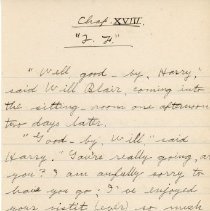 Chap XVIII
"J. F."
"Well good-by, Harry,"
said Will Blair coming into
the sitting room one afternoon
two days later.
"Good-by, Will" said
Harry. "You're really going, are
you? I am awfully sorry to
have you go; I've enjoyed
your visit (ever) so much